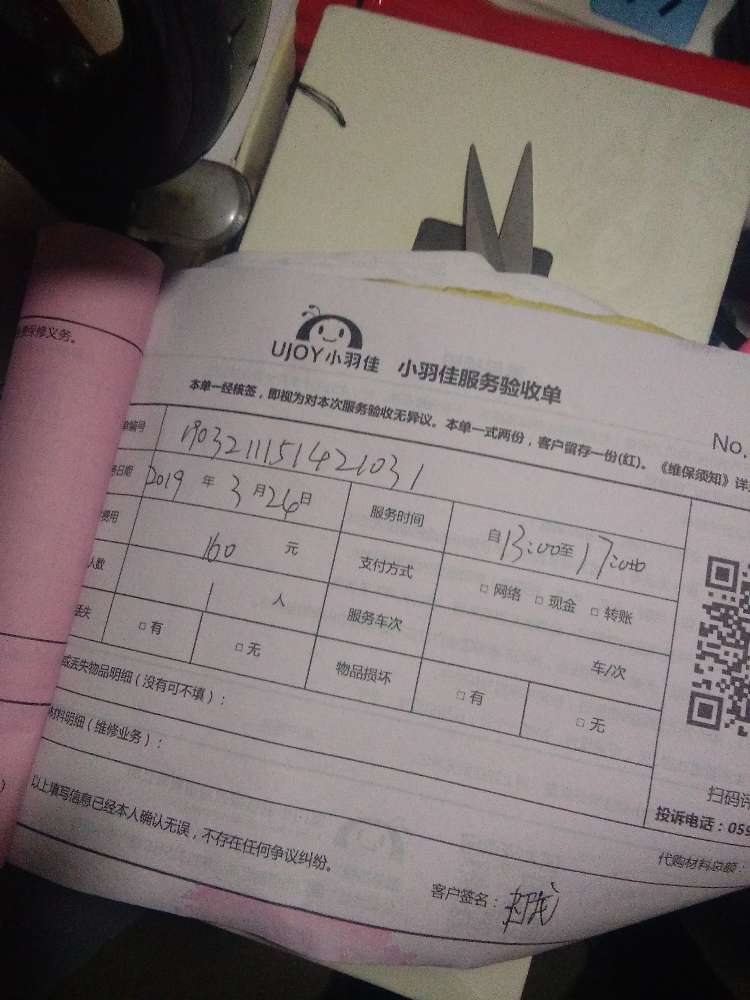 保修义务。
UJOY小羽佳 小羽佳服务验收单
No.
本单一经核签，即视为对本次服务验收无异议。本单一式两份，客户留存一份(红)。《维保须知》详
编号 1903211151421031
日期 2019 年 3 月 26 日 服务时间 自 13:00 至 17:00
费用 160 元 支付方式 □ 网络 □ 现金 □ 转账
人数 1 人 服务车次 车/次
丢失 □ 有 □ 无 物品损坏 □ 有 □ 无
或丢失物品明细（没有可不填）：
材料明细（维修业务）：
扫码评
投诉电话：059
以上填写信息已经本人确认无误，不存在任何争议纠纷。
代购材料总额：
客户签名：